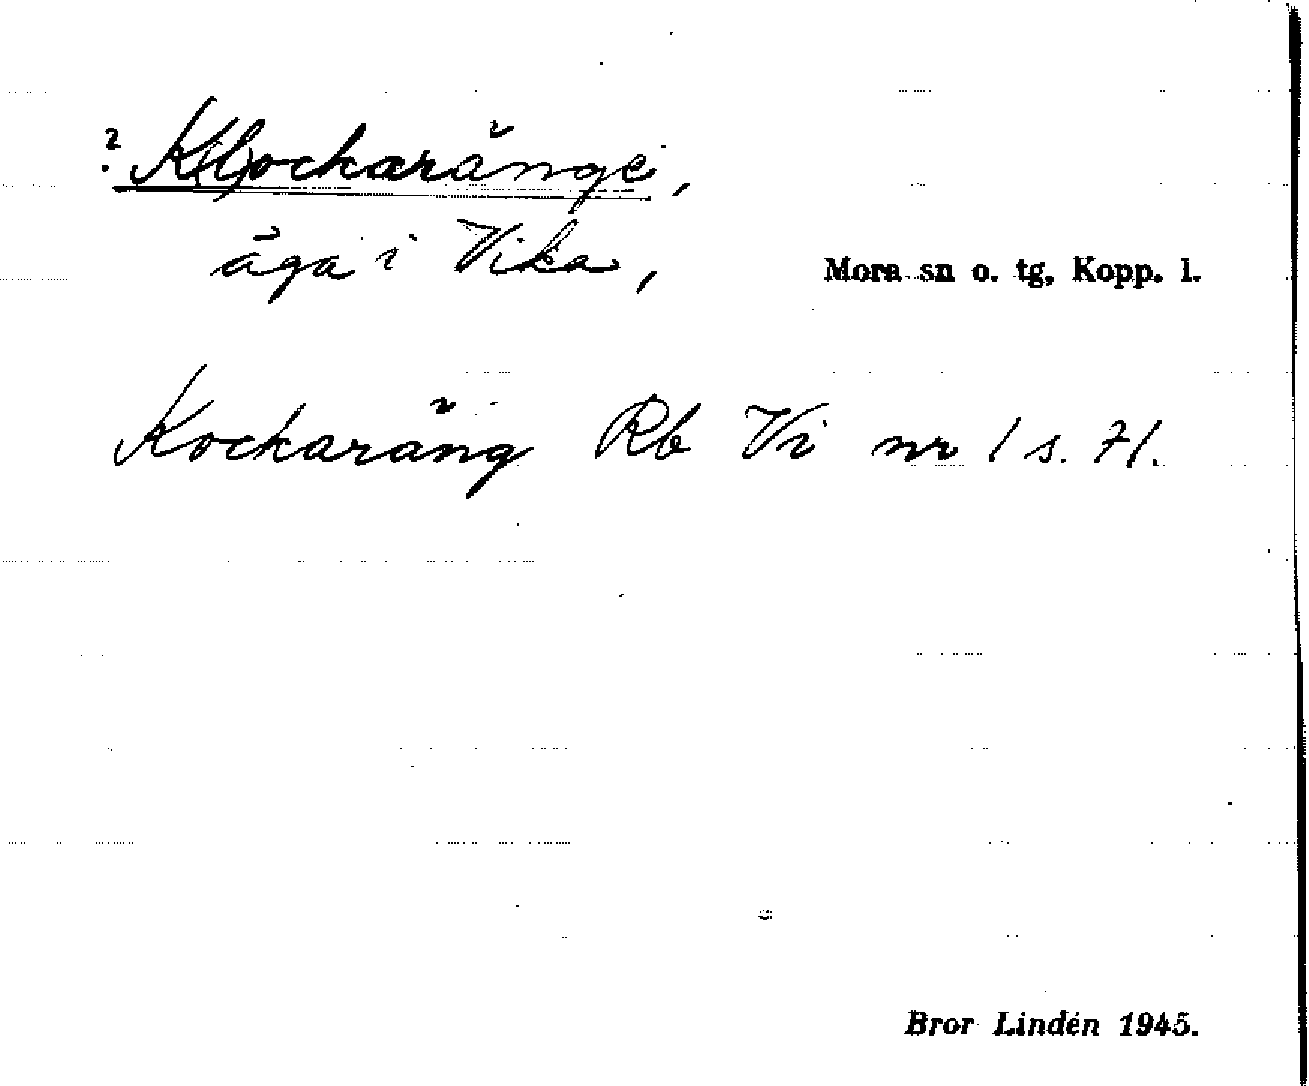 ? K(l)ockaränge,
äga i Vika,
Mora sn o. tg, Kopp. l.
Kockaräng Rb Vi nr 1 s. 71.
Bror Lindén 1945.